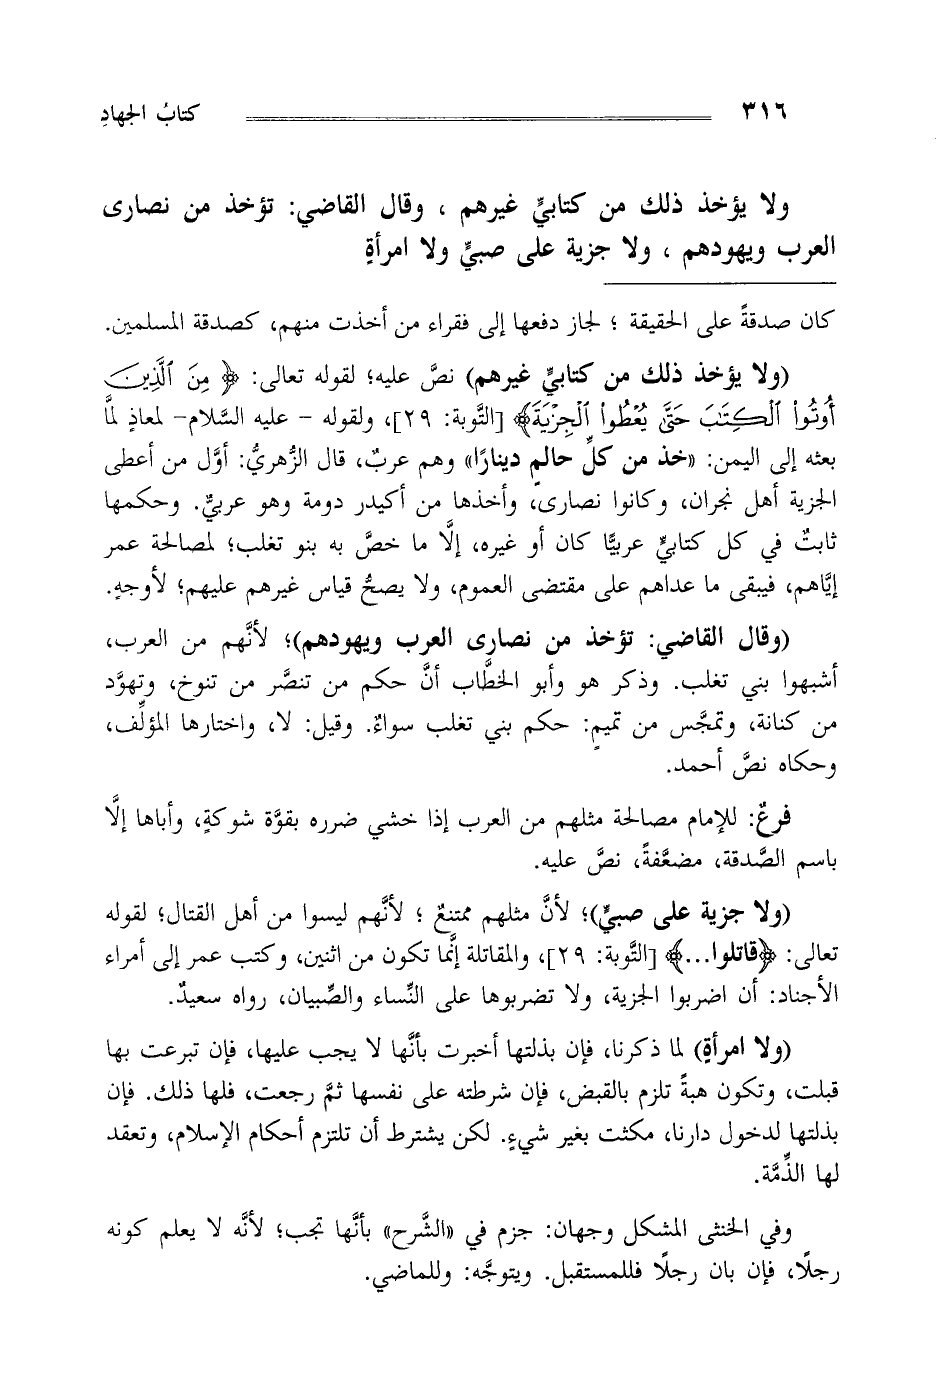 ٣١٦ كتابُ الجهادِ
ولا يؤخذ ذلك من كتابيٍّ غيرهم ، وقال القاضي: تؤخذ من نصارى
العرب ويهودهم ، ولا جزية على صبيٍّ ولا امرأةٍ
كان صدقةً على الحقيقة ؛ لجاز دفعها إلى فقراء من أخذت منهم، كصدقة المسلمين.
(ولا يؤخذ ذلك من كتابيٍّ غيرهم) نصَّ عليه؛ لقوله تعالى: ﴿مِنَ ٱلَّذِينَ
أُوتُواْ ٱلْكِتَٰبَ حَتَّىٰ يُعْطُواْ ٱلْجِزْيَةَ﴾ [التَّوبة: ٢٩]، ولقوله - عليه السَّلام- لمعاذٍ لمَّا
بعثه إلى اليمن: «خذ من كلِّ حالمٍ دينارًا» وهم عربٌ، قال الزُّهريُّ: أوَّل من أعطى
الجزية أهل نجران، وكانوا نصارى، وأخذها من أكيدر دومة وهو عربيٌّ. وحكمها
ثابتٌ في كل كتابيٍّ عربيًّا كان أو غيره، إلَّا ما خصَّ به بنو تغلب؛ لمصالحة عمر
إيَّاهم، فيبقى ما عداهم على مقتضى العموم، ولا يصحُّ قياس غيرهم عليهم؛ لأوجهٍ.
(وقال القاضي: تؤخذ من نصارى العرب ويهودهم)؛ لأنَّهم من العرب،
أشبهوا بني تغلب. وذكر هو وأبو الخطَّاب أنَّ حكم من تنصَّر من تنوخ، وتهوَّد
من كنانة، وتمجَّس من تميمٍ: حكم بني تغلب سواءٌ. وقيل: لا، واختارها المؤلِّف،
وحكاه نصَّ أحمد.
فرعٌ: للإمام مصالحة مثلهم من العرب إذا خشي ضرره بقوَّة شوكةٍ، وأباها إلَّا
باسم الصَّدقة، مضعَّفةً، نصَّ عليه.
(ولا جزية على صبيٍّ)؛ لأنَّ مثلهم ممتنعٌ ؛ لأنَّهم ليسوا من أهل القتال؛ لقوله
تعالى: ﴿قاتلوا...﴾ [التَّوبة: ٢٩]، والمقاتلة إنَّما تكون من اثنين، وكتب عمر إلى أمراء
الأجناد: أن اضربوا الجزية، ولا تضربوها على النِّساء والصِّبيان، رواه سعيدٌ.
(ولا امرأةٍ) لما ذكرنا، فإن بذلتها أخبرت بأنَّها لا يجب عليها، فإن تبرعت بها
قبلت، وتكون هبةً تلزم بالقبض، فإن شرطته على نفسها ثمَّ رجعت، فلها ذلك. فإن
بذلتها لدخول دارنا، مكثت بغير شيءٍ. لكن يشترط أن تلتزم أحكام الإسلام، وتعقد
لها الذِّمَّة.
وفي الخنثى المشكل وجهان: جزم في «الشَّرح» بأنَّها تجب؛ لأنَّه لا يعلم كونه
رجلًا، فإن بان رجلًا فللمستقبل. ويتوجَّه: وللماضي.